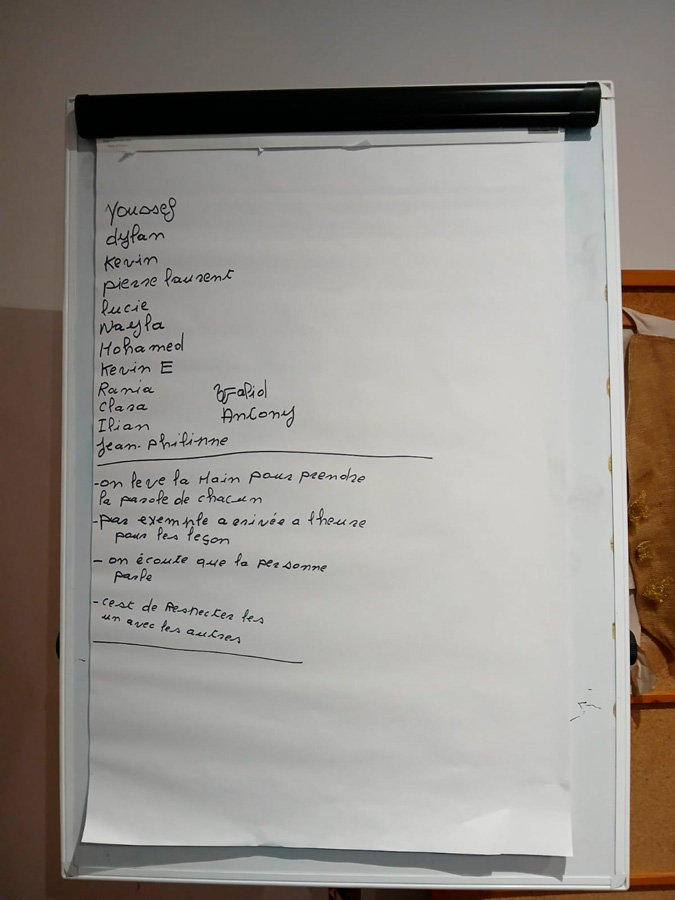 Youssef
dylan
Kevin
pierre laurent
Lucie
Nayla
Mohamed
Kevin E
Rania
Clara
Ilian
Jean-philippe
Walid
Antony
-on leve la Main pour prendre
la parole de chacun
-par exemple a arivée a l'heure
pour les leçon
- on écoute que la personne
parle
-cest de Respecter les
un avec les autres